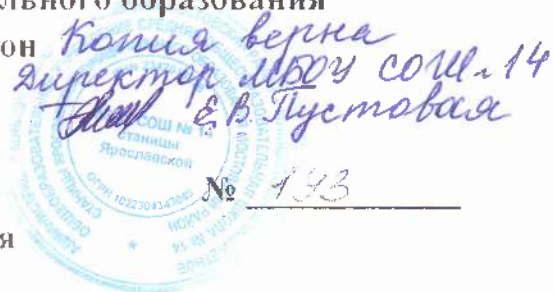 льного образования
он Копия верна
Директор МБОУ СОШ № 14
Е В Пустовая
СОШ № 14
станицы
Ярославской
№ 193
я